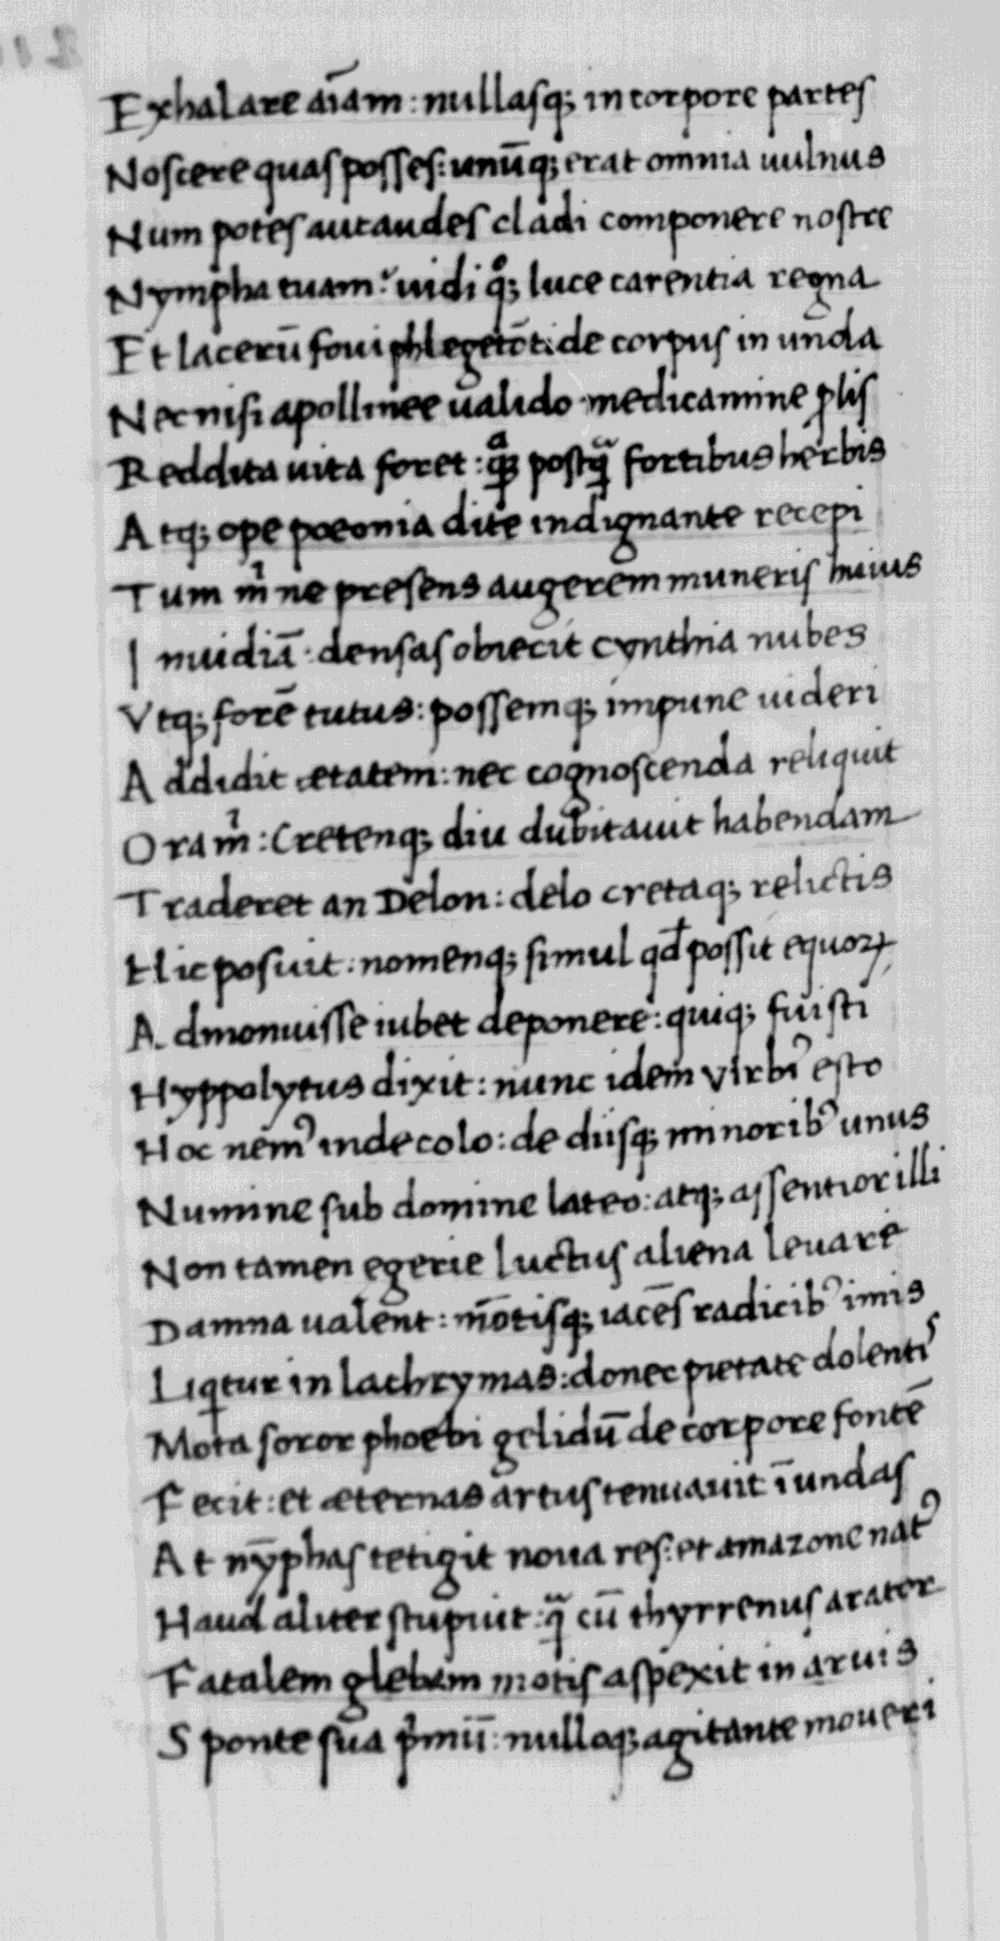 Exhalare aīam : nullasq; in corpore partes
Noscere quas posses : unūq; erat omnia uulnus
Num potes aut audes cladi componere nostre
Nympha tuam? uidi qͦ; luce carentia regna
Et lacerū foui phlegetōtide corpus in unda
Nec nisi apollinee ualido medicamine plis
Reddita uita foret : qᵃ; postq̄ fortibus herbis
Atq; ope poeonia dite indignante recepi
Tum m̍ ne presens augerem muneris huius
Inuidiā : densas obiecit cynthia nubes
Vtq; forē tutus : possemq; impune uideri
Addidit ætatem : nec cognoscenda reliquit
Ora m̍ : Cretenq; diu dubitauit habendam
Traderet an Delon : delo cretaq; relictis
Hic posuit : nomenq; simul qd̄ possit equoꝝ
Admonuisse iubet deponere : quiq; fuisti
Hyppolytus dixit : nunc idem Virbiꝰ esto
Hoc nemꝰ inde colo : de diisq; minoribꝰ unus
Numine sub domine lateo : atq; assentior illi
Non tamen egerie luctus aliena leuare
Damna ualent : mōtisq; iacēs radicibꝰ imis
Liqtur in lachrymas : donec pietate dolentiˢ
Mota soror phoebi gelidū de corpore fontē
Fecit : et æternas artus tenuauit ī undas
At nȳphas tetigit noua res : et amazone natꝰ
Haud aliter stupuit : q̄ cū thyrrenus arator
Fatalem glebam motis aspexit in aruis
Sponte sua p̍mū : nulloq; agitante moueri